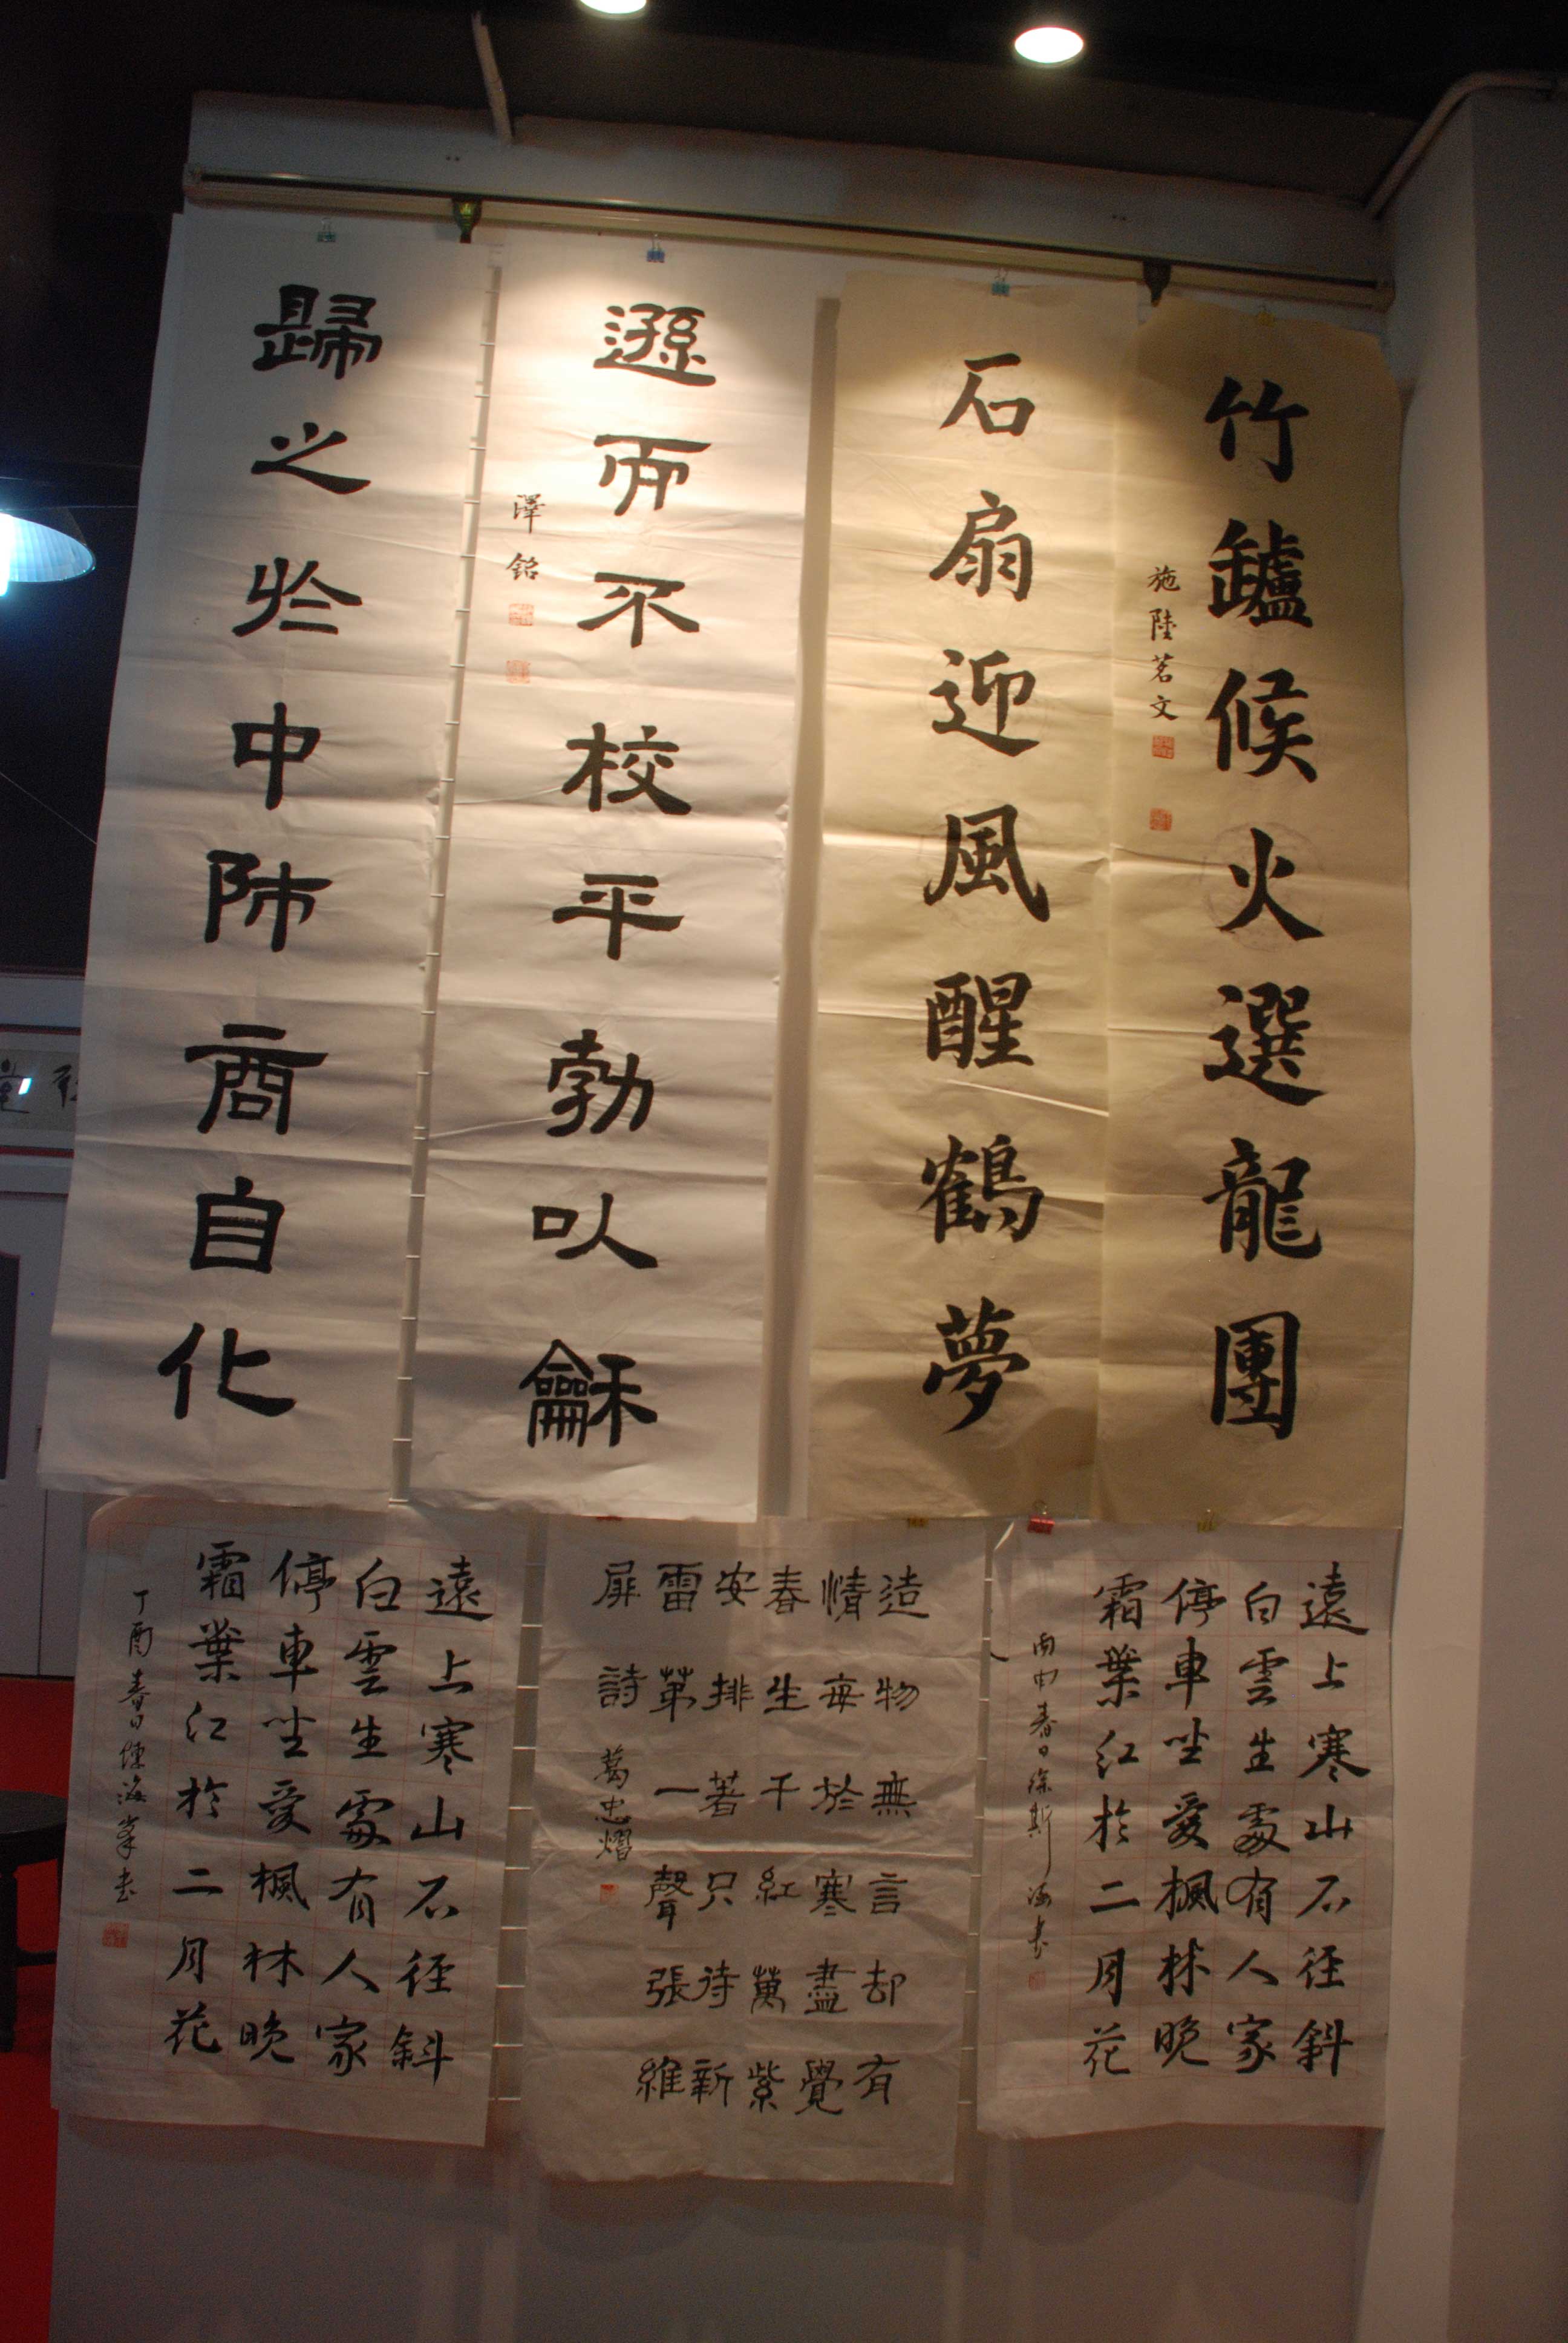 竹鑪候火選龍團
施陸茗文
石扇迎風醒鶴夢
遜而不校平勃以龢
澤銘
歸之於中師商自化
遠上寒山石徑斜
白雲生處有人家
停車坐愛楓林晚
霜葉紅於二月花
丙申春日徐斯海書
造物無言却有
情每於寒盡覺
春生千紅萬紫
安排著只待新
雷第一聲張維
屏詩
葛忠熠
遠上寒山石徑斜
白雲生處有人家
停車坐愛楓林晚
霜葉紅於二月花
丁酉春日陳海峯書